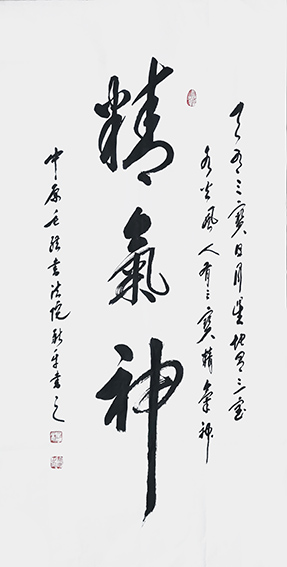 天有三寶日月星地有三宝
水火風人有三寶精氣神
精氣神
中原毛体书法院书之